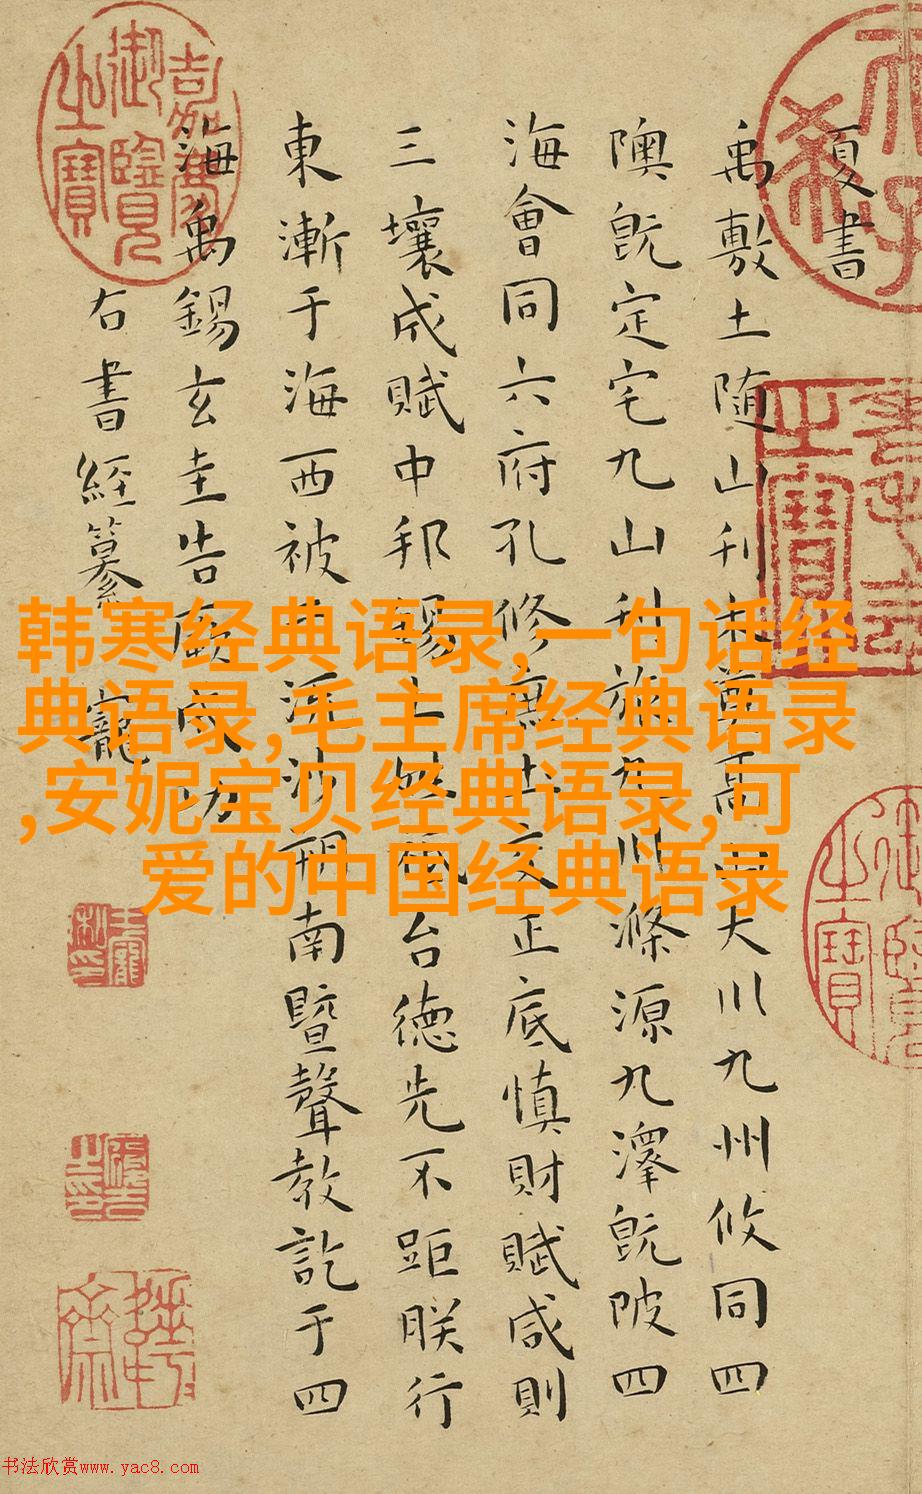 夏書
禹敷土随山刊木奠高山大川九州攸同四
隩既定宅九山刊旅九川滌源九澤既陂四
海會同六府孔修庶土交正底慎財賦咸則
三壤成賦中邦錫土姓祗台德先不距朕行
東漸于海西被于流沙朔南暨聲教訖于四
海禹錫玄圭告厥成功
右書經纂 寵
嘉慶御覽之寶
王寵私印
韩寒经典语录,一句话经
典语录,毛主席经典语录
,安妮宝贝经典语录,可
爱的中国经典语录
书法欣赏www.yac8.com